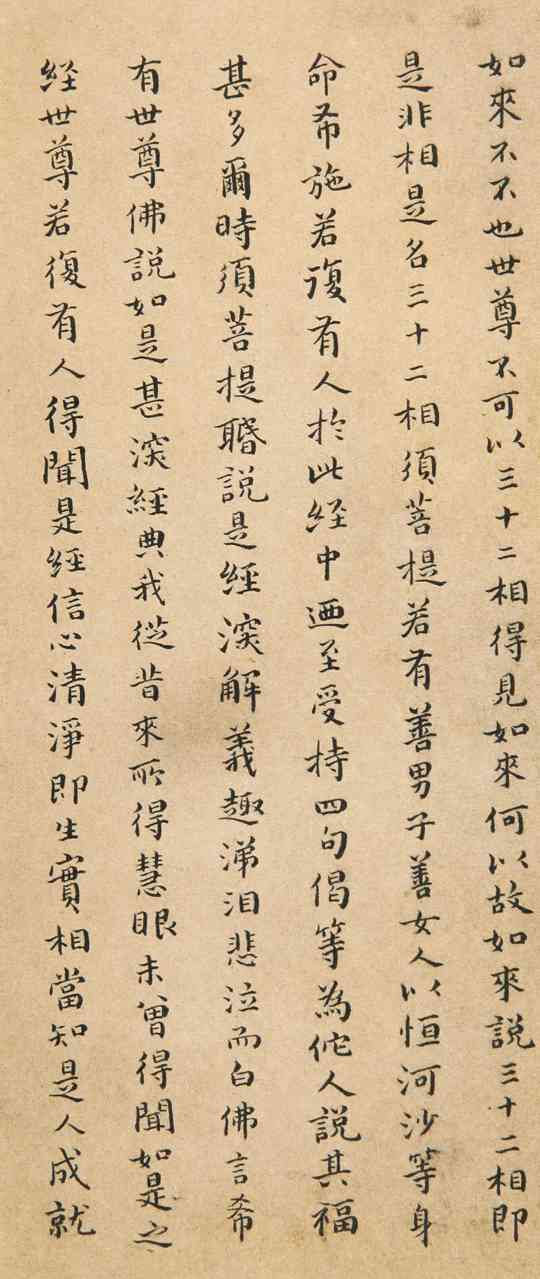 如來不不也世尊不可以三十二相得見如來何以故如來説三十二相即
是非相是名三十二相須菩提若有善男子善女人以恒河沙等身
命布施若復有人於此経中迺至受持四句偈等為佗人説其福
甚多爾時須菩提聞説是經深解義趣涕泪悲泣而白佛言希
有世尊佛説如是甚深經典我從昔來所得慧眼未曾得聞如是之
経世尊若復有人得聞是經信心清淨即生實相當知是人成就